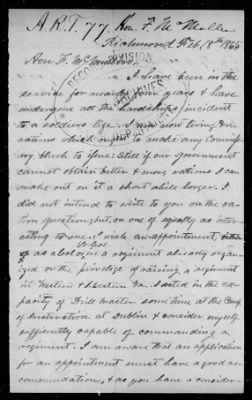 A.R.T. 77. Hon. F. McMullen
Richmond Feb. 18th 1865
Hon. F. McMullen
I have been in the
service for nearly four years & have
undergone all the hardships incident
to a soldiers life. I am now living on
rations which ought to make any
blush to Issue; still if our government
cannot obtain better & more rations I can
make out on it a short while longer. I
did not intend to write to you on the ra-
tion question, but on one of equally as inter-
esting to me. I wish an appointment, either
as a Lt. Col. or a regiment already organ-
ized or the privilege of raising a regiment
in Western & Western Va. I acted in the ca-
pacity of Drill Master some time at the Camp
of Instruction at Dublin & consider myself
sufficiently capable of commanding a
regiment. I am aware that an application
for an appointment must have a good re-
commendation, & as you have a consider-
RECORD DIVISION
ARCHIVES